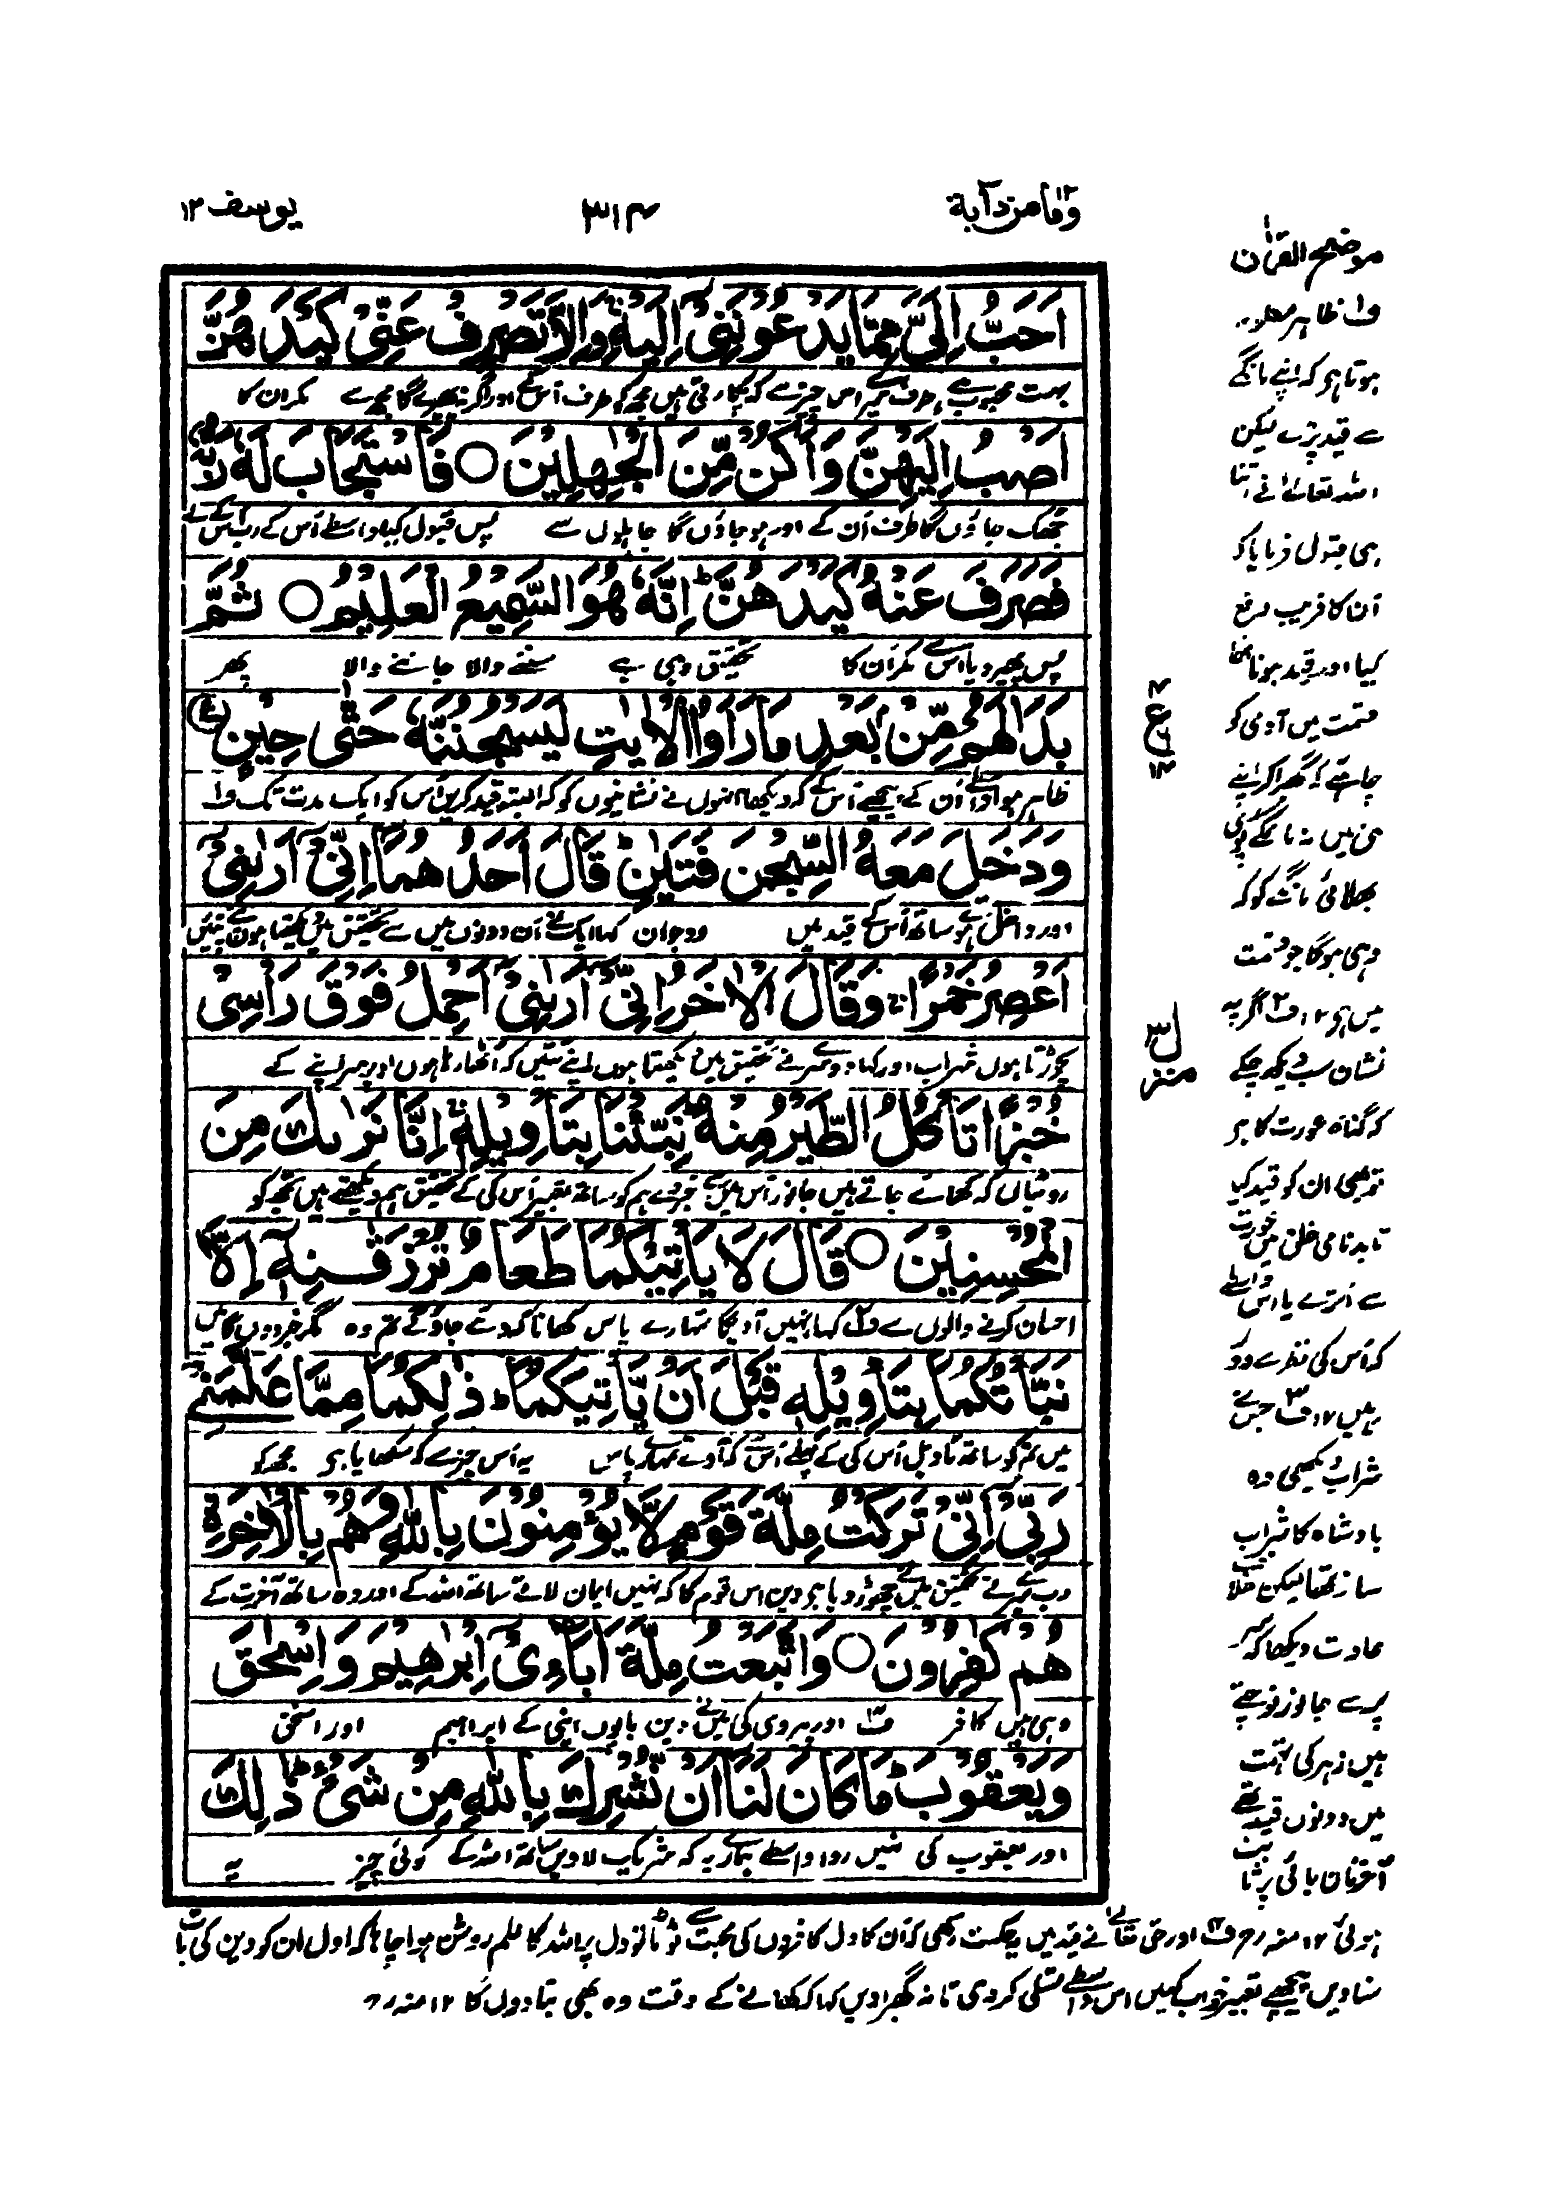 وما من دآبة ١٢
٣١٤
يوسف ١٢
اَحَبُّ اِلَيَّ مِمَّا يَدْعُوْنَنِيْٓ اِلَيْهِ ۚ وَاِلَّا تَصْرِفْ عَنِّيْ كَيْدَهُنَّ
بہت محبوب ہے طرف میرے اس چیز سے کہ پکارتی ہیں مجھ کو طرف اُس کے اور اگر نہ پھیرے گا مجھ سے مکر ان کا
اَصْبُ اِلَيْهِنَّ وَاَكُنْ مِّنَ الْجٰهِلِيْنَ ○ فَاسْتَجَابَ لَهٗ رَبُّهٗ
جھک جاؤں گا طرف اُن کے اور ہو جاؤں گا جاہلوں سے پس قبول کیا واسطے اُس کے رب اس کے نے
فَصَرَفَ عَنْهُ كَيْدَهُنَّ ۭ اِنَّهٗ هُوَ السَّمِيْعُ الْعَلِيْمُ ○ ثُمَّ
پس پھیر دیا اس سے مکر اُن کا تحقیق وہی ہے سننے والا جاننے والا پھر
بَدَا لَهُمْ مِّنْۢ بَعْدِ مَا رَاَوُا الْاٰيٰتِ لَيَسْجُنُنَّهٗ حَتّٰى حِيْنٍ
ظاہر ہوا واسطے اُن کے پیچھے اُس کے کہ دیکھا انہوں نے نشانیوں کو کہ البتہ قید کریں اُس کو ایک مدت تک ف۱
وَدَخَلَ مَعَهُ السِّجْنَ فَتَيٰنِ ۭ قَالَ اَحَدُهُمَآ اِنِّيْٓ اَرٰىنِيْٓ
اور داخل ہوئے ساتھ اُس کے قید میں دو جوان کہا ایک نے اُن دونوں میں سے تحقیق میں دیکھتا ہوں اپنے تئیں
اَعْصِرُ خَمْرًا ۚ وَقَالَ الْاٰخَرُ اِنِّيْٓ اَرٰىنِيْٓ اَحْمِلُ فَوْقَ رَاْسِيْ
نچوڑتا ہوں شراب اور کہا دوسرے نے تحقیق میں دیکھتا ہوں اپنے تئیں کہ اُٹھا رہا ہوں اوپر سر اپنے کے
خُبْزًا تَاْكُلُ الطَّيْرُ مِنْهُ ۭ نَبِّئْنَا بِتَاْوِيْلِهٖ ۚ اِنَّا نَرٰىكَ مِنَ
روٹیاں کہ کھاتے جاتے ہیں جانور اُس میں سے خبر دے ہم کو ساتھ تعبیر اُس کی کے تحقیق ہم دیکھتے ہیں تجھ کو
الْمُحْسِنِيْنَ ○ قَالَ لَا يَاْتِيْكُمَا طَعَامٌ تُرْزَقٰنِهٖٓ اِلَّا
احسان کرنے والوں سے ف۲ کہا نہیں آویگا تمہارے پاس کھانا کہ دئے جاؤ گے تم وہ مگر خبر دوں گا میں
نَبَّاْتُكُمَا بِتَاْوِيْلِهٖ قَبْلَ اَنْ يَّاْتِيَكُمَا ۭ ذٰلِكُمَا مِمَّا عَلَّمَنِيْ
میں تم کو ساتھ تاویل اُس کی کے پہلے اس سے کہ آوے تمہارے پاس یہ اُس چیز سے کہ سکھایا ہے مجھ کو
رَبِّيْ ۭ اِنِّيْ تَرَكْتُ مِلَّةَ قَوْمٍ لَّا يُؤْمِنُوْنَ بِاللّٰهِ وَهُمْ بِالْاٰخِرَةِ
رب میرے نے تحقیق میں نے چھوڑ دیا ہے دین اس قوم کا کہ نہیں ایمان لاتے ساتھ اللہ کے اور وہ ساتھ آخرت کے
هُمْ كٰفِرُوْنَ ○ وَاتَّبَعْتُ مِلَّةَ اٰبَآءِيْٓ اِبْرٰهِيْمَ وَاِسْحٰقَ
وہی ہیں کافر ف۳ اور پیروی کی میں نے دین باپوں اپنی کے ابراہیم اور اسحٰق
وَيَعْقُوْبَ ۭ مَا كَانَ لَنَآ اَنْ نُّشْرِكَ بِاللّٰهِ مِنْ شَيْءٍ ۭ ذٰلِكَ
اور یعقوب کی نہیں روا واسطے ہمارے یہ کہ شریک لاویں ساتھ اللہ کے کوئی چیز یہ
ع
منزل ٣
موضح القرآن
ف۱ ظاہر معلوم
ہوتا ہے کہ اپنے مانگے
سے قید پڑے لیکن
اللہ تعالیٰ نے اتنا
ہی قبول فرمایا کہ
اُن کا فریب دفع
کیا اور قید ہونا تھا
قسمت میں آدمی کو
چاہئے کہ گھبرا کر اپنے
حق میں نہ مانگے بُرائی
بھلائی مانگے گو کہ
وہی ہوگا جو قسمت
میں ہے ۱۲ ف۲ اگرچہ
نشان سب دیکھ چکے
کہ گناہ عورت کا ہے
تو بھی ان کو قید کیا
تا بدنامی خلق میں عورت
سے اُترے یا اس واسطے
کہ اُس کی نظر سے دور
رہیں ۱۲ ف۳ جس نے
شراب دیکھی وہ
بادشاہ کا شراب
ساز تھا لیکن خلاف
عادت دیکھا کہ سر
پر سے جانور نوچتے
ہیں زہر کی تہمت
میں دونوں قید تھے
آخر نان بائی پر ثابت
ہوئی ۱۲ منہ رح ف۴ اور حق تعالیٰ نے قید میں یہ حکمت رکھی کہ اُن کا دل کافروں کی محبت سے ٹوٹا تو دل پر اللہ کا علم روشن ہوا چاہا کہ اول ان کو دین کی بات
سنا ویں پیچھے تعبیر خواب کہیں اس واسطے تسلی کر دی تا نہ گھبراویں کہا کہ کھانے کے وقت وہ بھی بتا دوں گا ۱۲ منہ رح